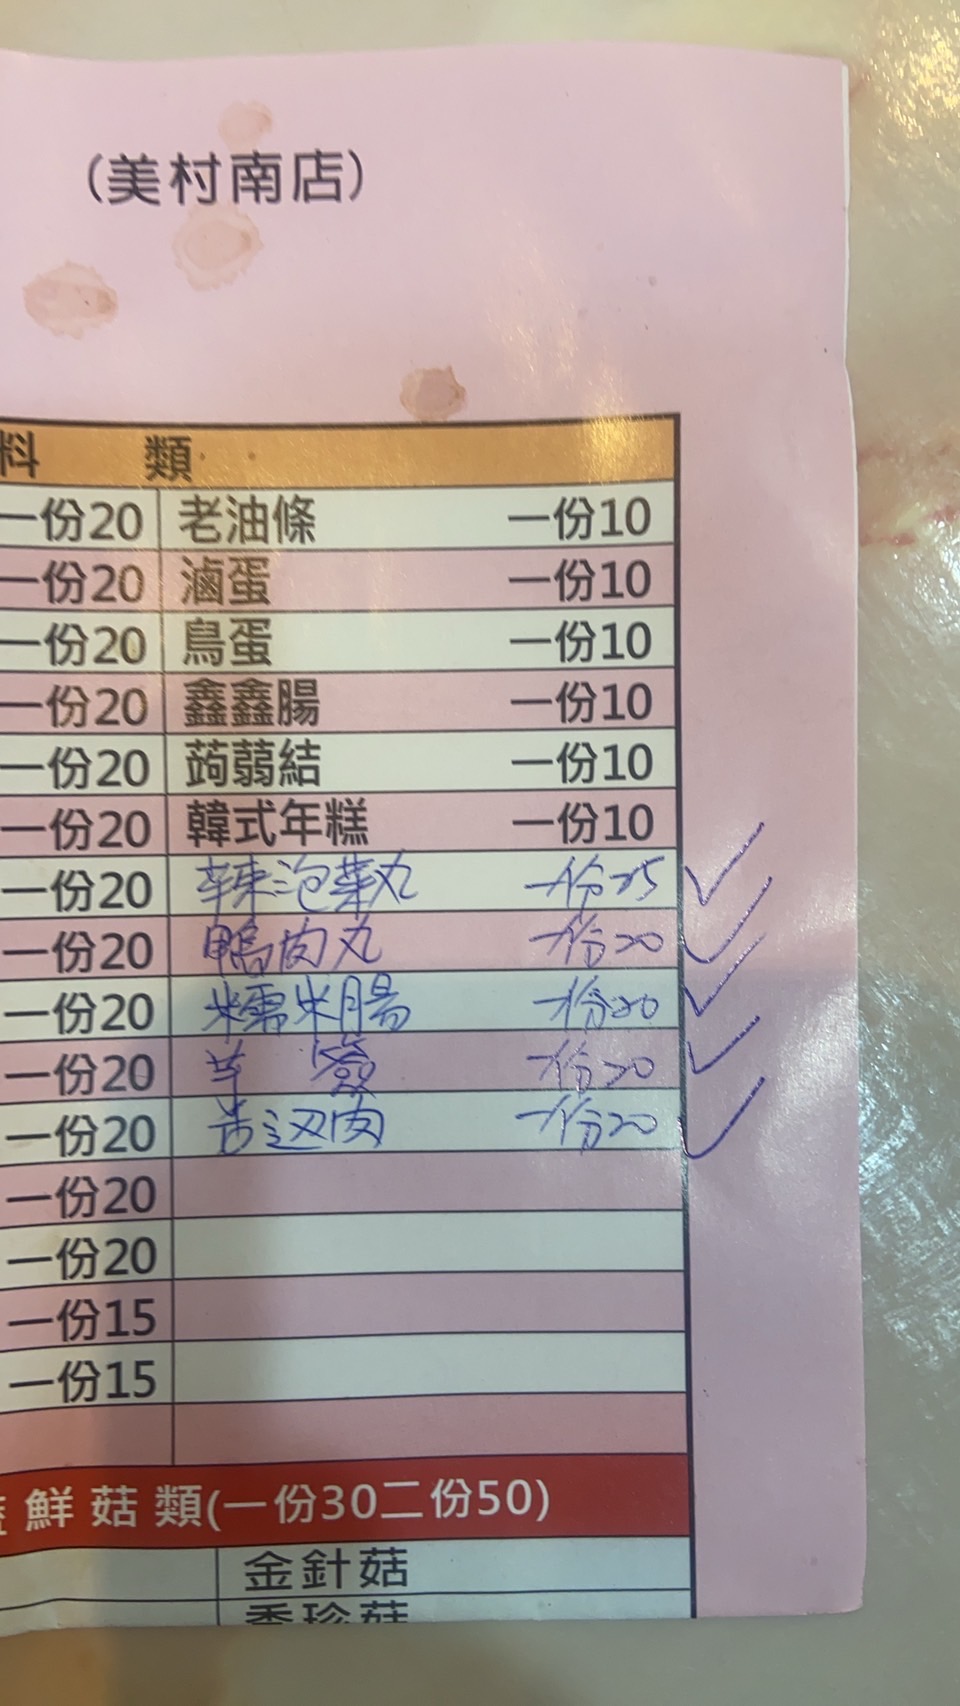 (美村南店)
料 類
一份20 老油條 一份10
一份20 滷蛋 一份10
一份20 鳥蛋 一份10
一份20 鑫鑫腸 一份10
一份20 蒟蒻結 一份10
一份20 韓式年糕 一份10
一份20 辣泡菜丸 一份25
一份20 鴨肉丸 一份20
一份20 糯米腸 一份20
一份20 羊 一份20
一份20 肉 一份20
一份20
一份20
一份15
一份15
鮮菇類(一份30二份50)
金針菇
香珍菇